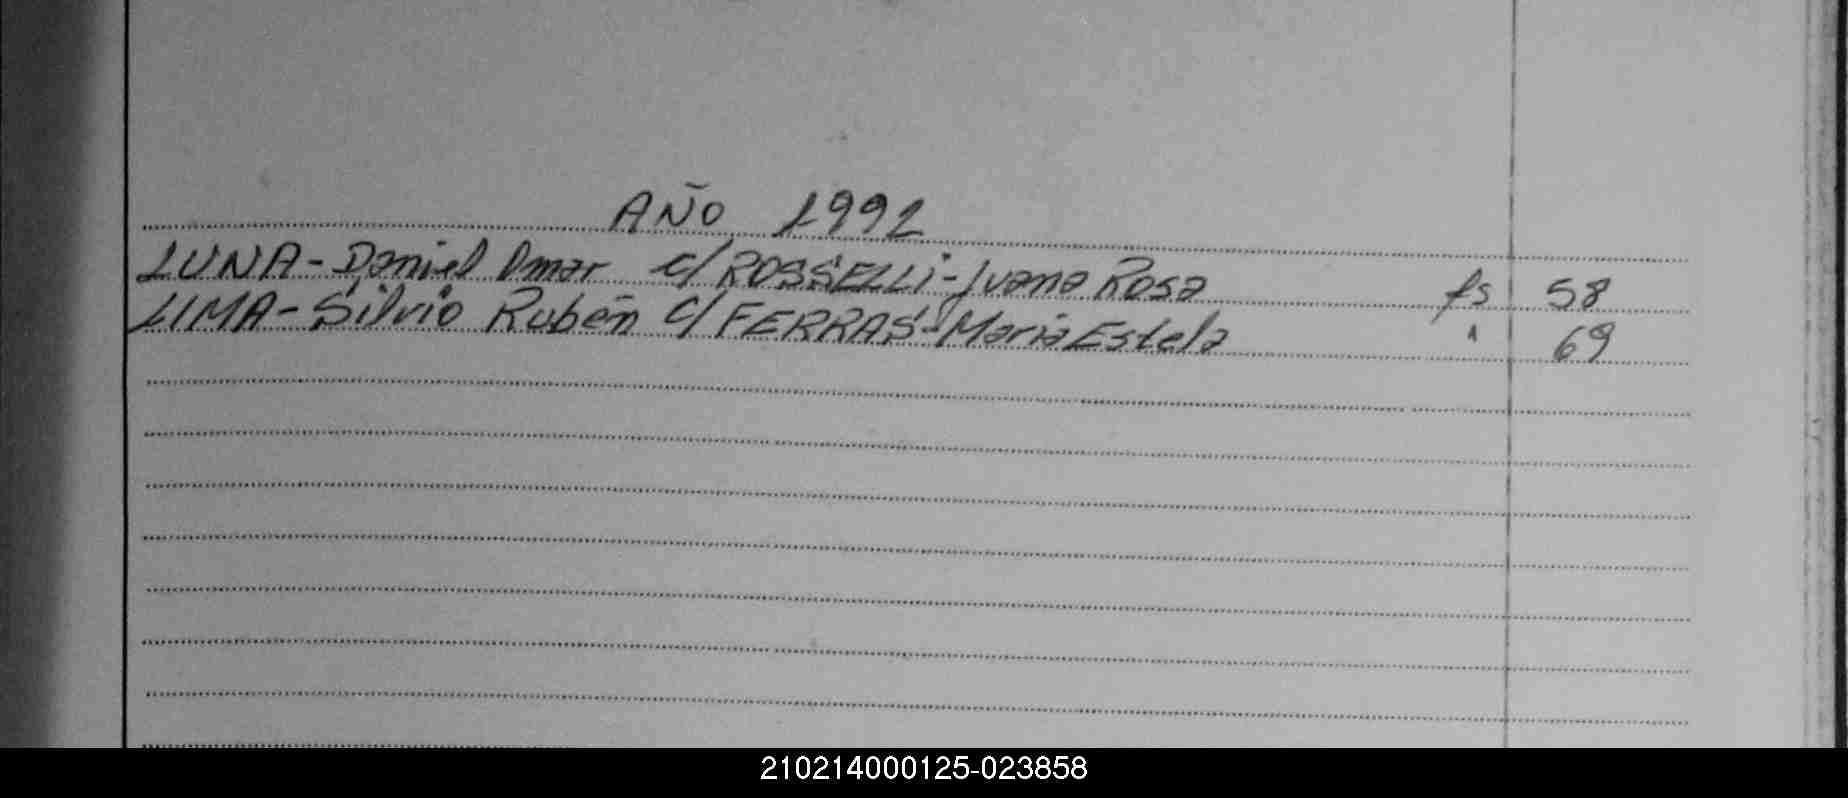 AÑO 1992
LUNA - Daniel Omar c/ ROSSELLI - Juana Rosa fs 58
LIMA - Silvio Rubén c/ FERRAS - Maria Estela " 69
210214000125-023858